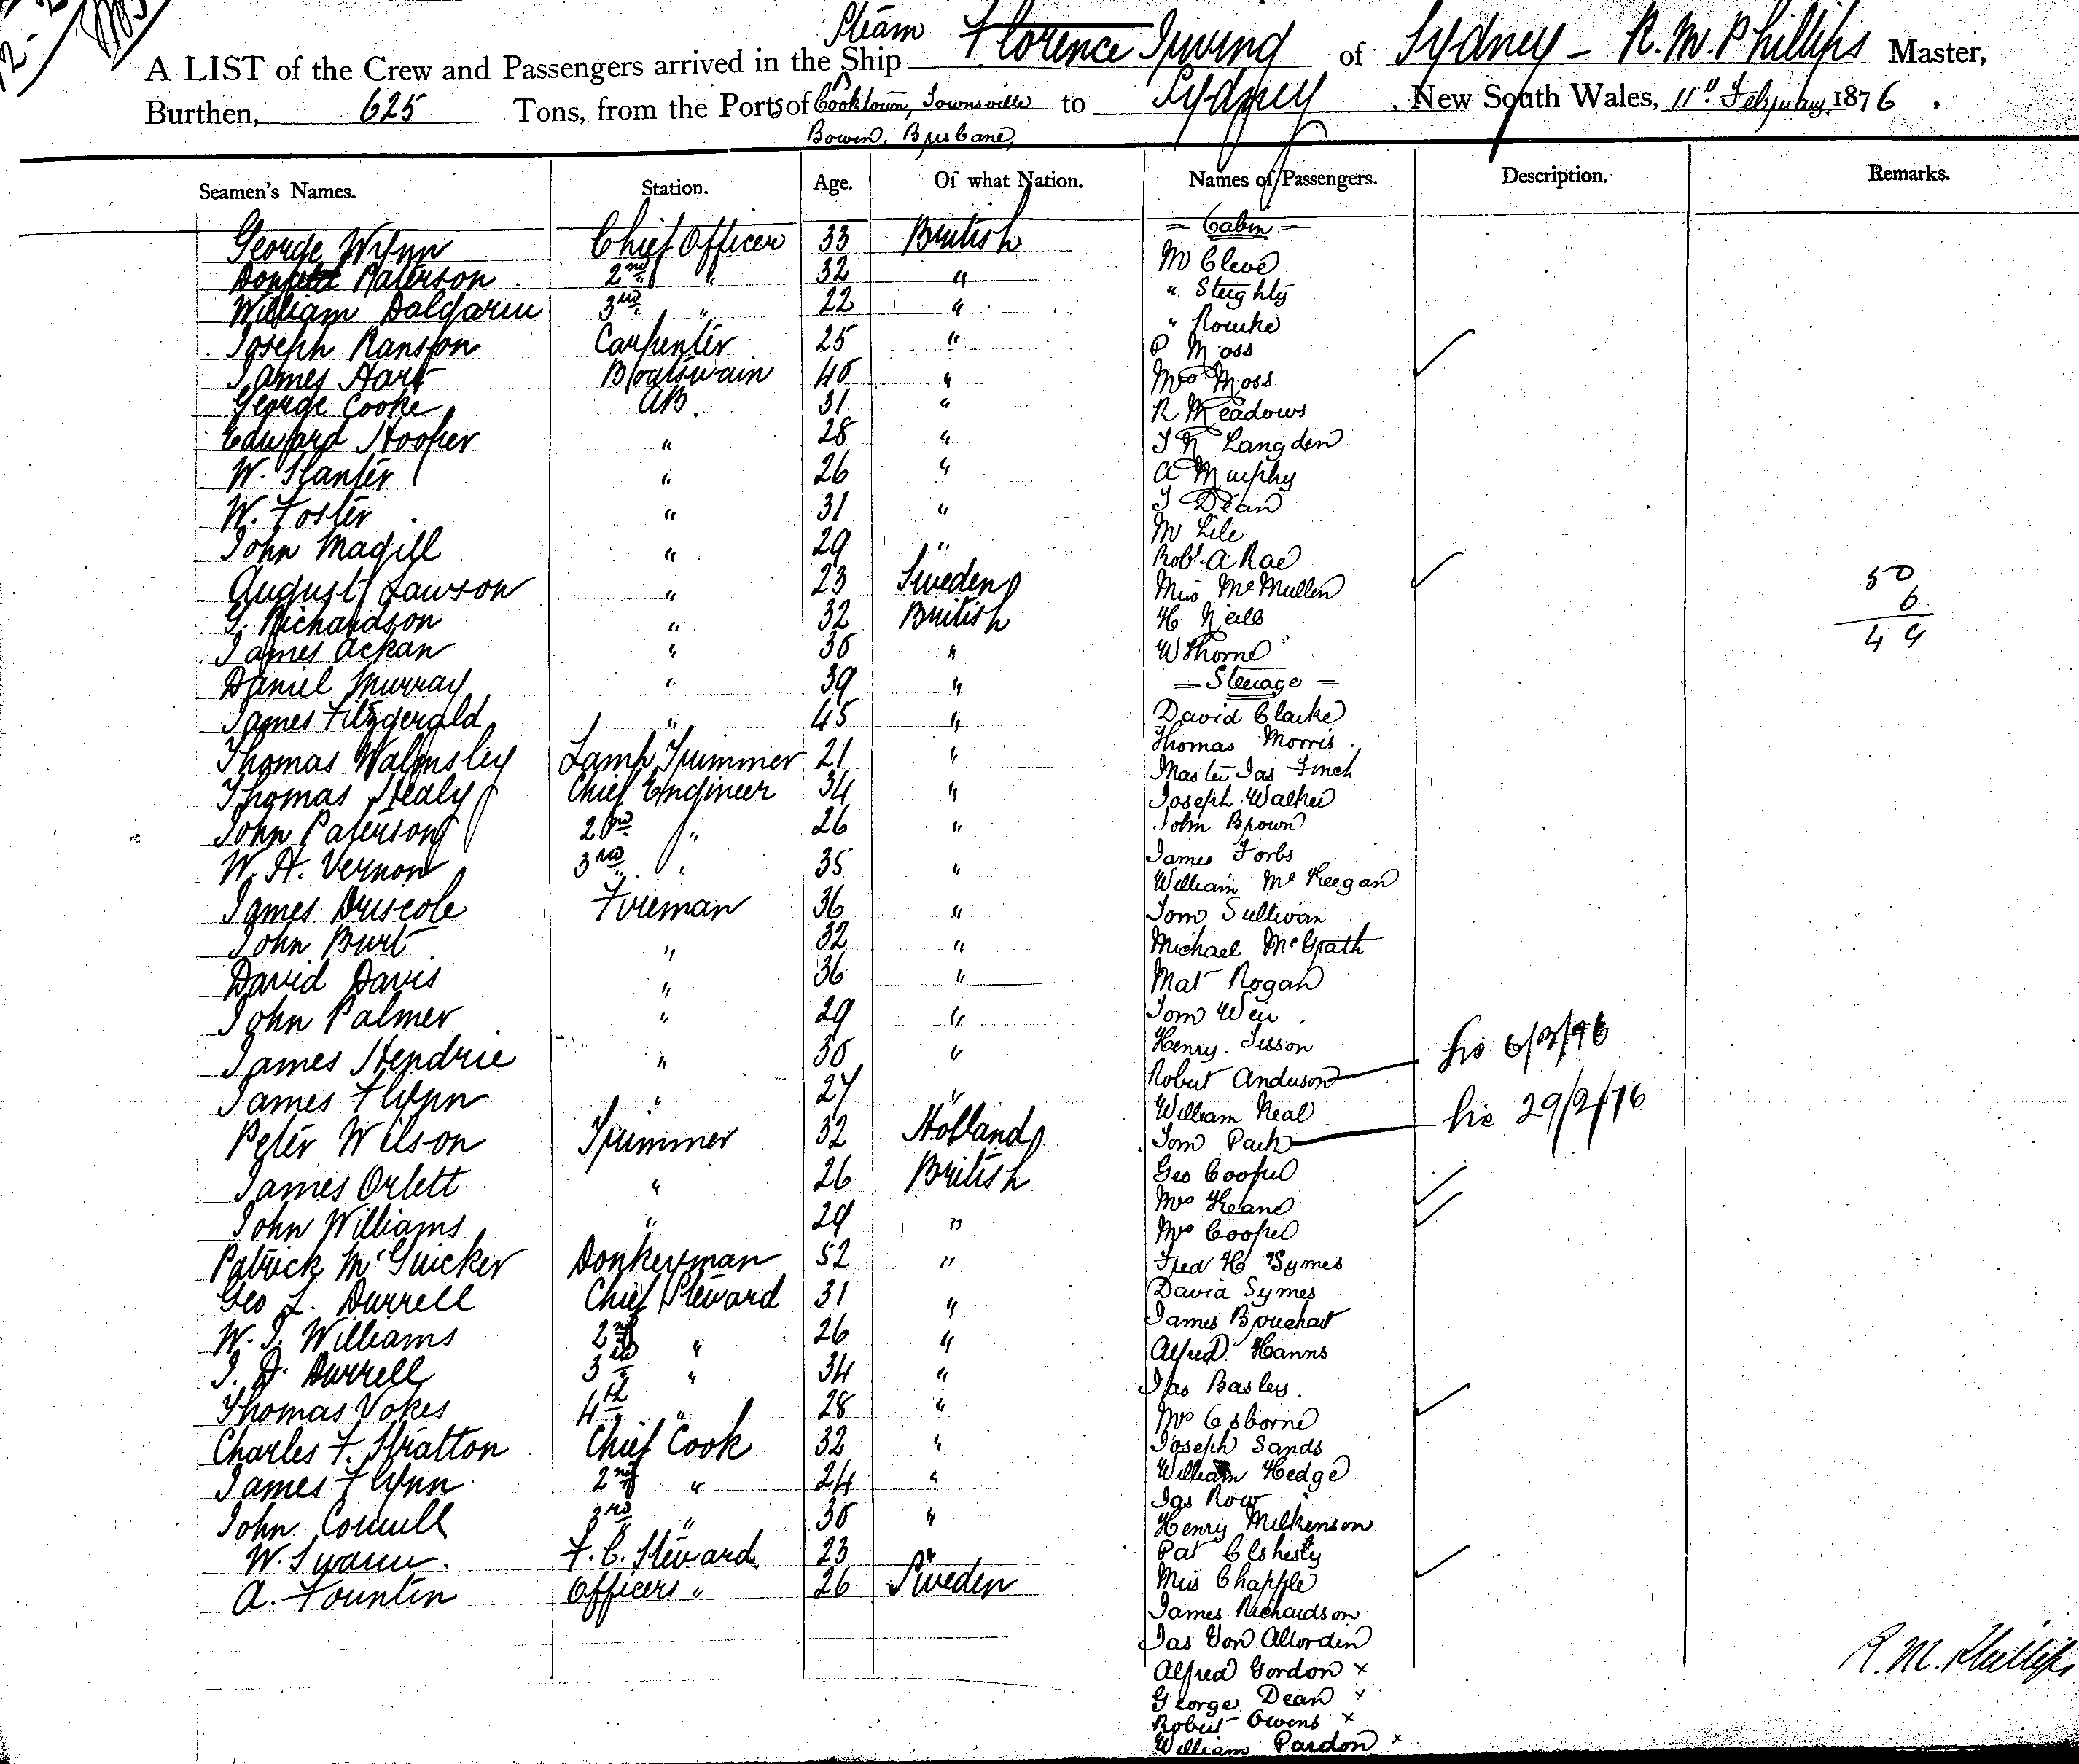 Steam
A LIST of the Crew and Passengers arrived in the Ship Florence Irving of Sydney - R. M. Phillips Master,
Burthen, 625 Tons, from the Ports of Cooktown, Townsville to Sydney, New South Wales, 11th February 1876.
Bowen, Brisbane,
Seamen's Names. Station. Age. Of what Nation. Names of Passengers. Description. Remarks.
= Cabin =
George Wynn Chief Officer 33 British Mr Cleve
Paterson 2nd " 32 " " Steghly
William Dalgarn 3rd " 22 " " Rourke
Joseph Ranson Carpenter 25 " P Moss
James Hart Boatswain 40 " Mrs Moss
George Cooke AB. 31 " R Meadows
Edward Hooper " 28 " J N Langden
W. Slanter " 26 " A Murphy
W. Foster " 31 " J Dean
John Magill " 29 " Mr Lile
Robt. A Rae
August Lawson " 23 Sweden Miss McMullen
G. Richardson " 32 British H Neill
James Ackan " 30 " W Thorne
Daniel Murray " 39 " = Steerage =
James Fitzgerald " 45 " David Clarke
Thomas Walmsley Lamp Trimmer 21 " Thomas Morris.
Master Jas Finch
Thomas Healy Chief Engineer 34 " Joseph Walker
John Paterson 2nd " 26 " John Brown
W. H. Vernon 3rd " 35 " James Forbs
William McKeegan
James Driscole Fireman 36 " Tom Sullivan
John Burt " 32 " Michael McGrath
David Davis " 36 " Mat Rogan
John Palmer " 29 " Tom Weir
Henry Sisson
James Hendrie " 30 " Robert Anderson 6/3/76
James Flynn " 27 " William Neal
Peter Wilson Trimmer 32 Holland Tom Park 29/2/76
James Orlett " 26 British Geo Cooper
Mrs Keane
John Williams " 29 " Mrs Cooper
Patrick McGuicker Donkeyman 52 " Fred H Symes
Geo L. Durrell Chief Steward 31 " David Symes
James Bouchat
W. J. Williams 2nd " 26 " Alfred Hanns
J. D. Durrell 3rd " 34 " Jas Basley.
Thomas Vokes 4th " 28 " Mrs Osborne
Charles F. Stratton Chief Cook 32 " Joseph Sands
James Flynn 2nd " 24 " William Hedge
Jas Row
John Connell 3rd " 30 " Henry Milkenson
W. Swann. F. C. Steward. 23 " Pat
A. Fountin Officers " 26 Sweden Miss Chapple
James Richardson
Jas Von Allorden
Alfred Gordon x
George Dean x
Robert Owens x
William Pardon x
50
6
49
R. M. Phillips